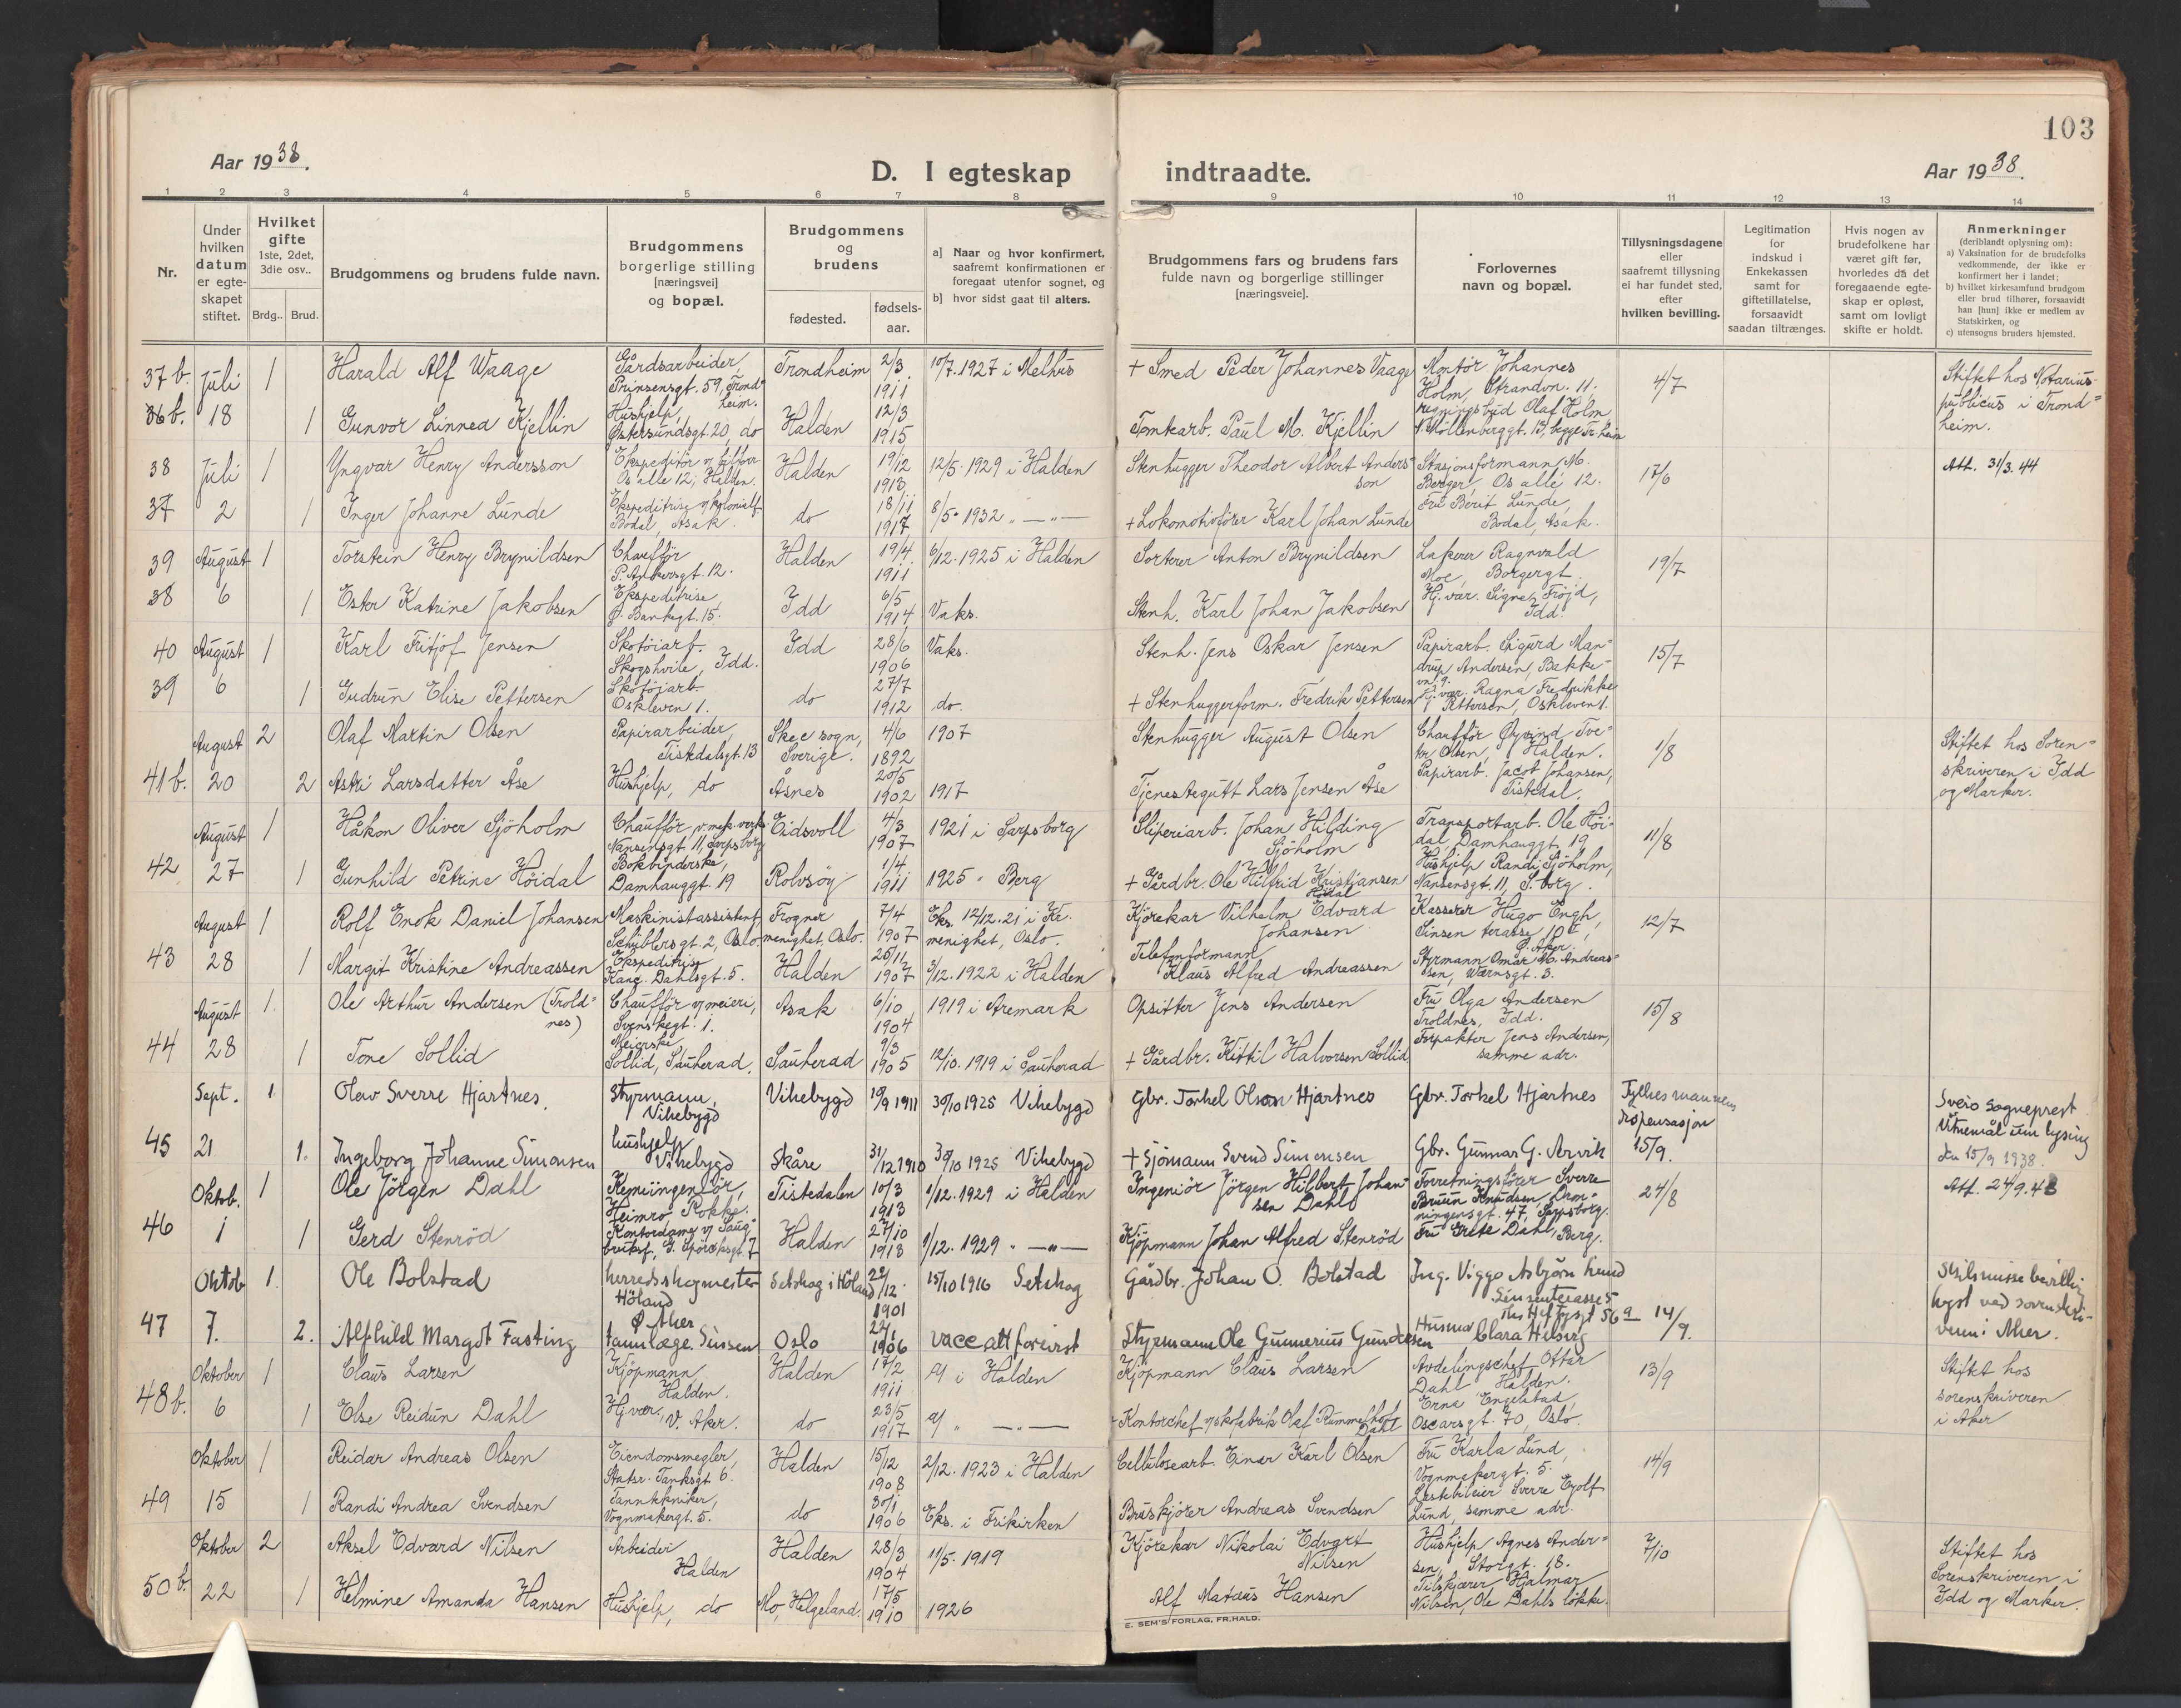 103
Aar 1938.
D. I egteskap indtraadte.
Aar 1938.
1 2 3 4 5 6 7 8 9 10 11 12 13 14
Nr.
Under hvilken datum er egteskapet stiftet.
Hvilket gifte 1ste, 2det, 3die osv..
Brdg.. Brud.
Brudgommens og brudens fulde navn.
Brudgommens borgerlige stilling [næringsvei] og bopæl.
Brudgommens og brudens
fødested.
fødsels-aar.
a] Naar og hvor konfirmert, saafremt konfirmationen er foregaat utenfor sognet, og
b] hvor sidst gaat til alters.
Brudgommens fars og brudens fars fulde navn og borgerlige stillinger [næringsveie].
Forlovernes navn og bopæl.
Tillysningsdagene eller saafremt tillysning ei har fundet sted, efter hvilken bevilling.
Legitimation for indskud i Enkekassen samt for giftetillatelse, forsaavidt saadan tiltrænges.
Hvis nogen av brudefolkene har været gift før, hvorledes da det foregaaende egteskap er opløst, samt om lovligt skifte er holdt.
Anmerkninger (deriblandt oplysning om):
a) Vaksination for de brudefolks vedkommende, der ikke er konfirmert her i landet;
b) hvilket kirkesamfund brudgom eller brud tilhører, forsaavidt han [hun] ikke er medlem av Statskirken, og
c) utensogns bruders hjemsted.
37 b. Juli 1 Harald Alf Waage Gårdsarbeider, Prinsensgt. 59, Trondheim. Trondheim 2/3 1911 10/7. 1927 i Melhus + Smed Peder Johannes Vaage Montør Johannes Holm, Strandvn. 11. 4/7 Stiftet hos Notarius publicus i Trondheim.
36 b. 18 1 Gunvor Linnea Kjellin Hushjelp, Østersundsgt. 20, do Halden 12/3 1915 Tomtearb. Paul M. Kjellin Olaf Holm, N. Møllenberggt. 13, begge Tr.heim
38 Juli 1 Yngvar Henry Andersson Ekspeditør Os alle 12, Halden. Halden 19/12 1913 12/5. 1929 i Halden Stenhugger Theodor Albert Andersson Stasjonsformann M. Berger, Os alle 12. 17/6 Att. 31/3. 44
37 2 1 Inger Johanne Lunde Ekspeditrise v/ kolonialf. Bodal, Asak. do 18/11 1917 8/5. 1932 " — " — + Lokomotivfører Karl Johan Lunde Fru Berit Lunde, Bodal, Asak.
39 August 1 Torstein Henry Brynildsen Chauffør P. Ankersgt. 12. Halden 19/4 1911 6/12. 1925 i Halden Sorterer Anton Brynildsen Lakerer Ragnvald Moe, Borgergt. 19/7
38 6 1 Ester Katrine Jakobsen Ekspeditrise, Ø. Bankegt. 15. Idd 6/5 1914 Vaks. Stenh. Karl Johan Jakobsen Hj. vær. Signe Frøjd, Idd.
40 August 1 Karl Fritjof Jensen Skotøiarb. Skogshvile, Idd. Idd 28/6 1906 Vaks. Stenh. Jens Oskar Jensen Papirarb. Sigurd Mandrup Andersen, Bakkevn. 9. 15/7
39 6 1 Gudrun Elise Pettersen Skotøjarb. Oskleven 1. do 27/7 1912 do. + Stenhuggerform. Fredrik Pettersen Hj. vær. Ragna Fredrikke Pettersen, Oskleven 1.
August 2 Olaf Martin Olsen Papirarbeider, Tistedalsgt. 13 Skee sogn, Sverige. 4/6 1892 1907 Stenhugger August Olsen Chauffør Øyvind Tveter Olsen, Halden. 1/8 Stiftet hos Sorenskriveren i Idd og Marker.
41 b. 20 2 Astri Larsdatter Åse Hushjelp, do Åsnes 20/5 1902 1917 Tjenestegutt Lars Jensen Åse Papirarb. Jacob Johansen, Tistedal.
August 1 Håkon Oliver Sjöholm Chauffør v. mek. verks. Nansensgt. 11, Sarpsborg Eidsvoll 4/3 1907 1921 i Sarpsborg Sliperiarb. Johan Hilding Sjöholm Transportarb. Ole Höidal, Damhauggt. 19 11/8
42 27 1 Gunhild Petrine Höidal Bokbinderske, Damhauggt. 19 Rolvsöy 1/4 1911 1925 " Berg + Gårdbr. Ole Hilfrid Kristiansen Höidal Hushjelp Randi Sjöholm, Nansensgt. 11, S.borg.
August 1 Rolf Enok Daniel Johansen Maskinistassistent Schüblersgt. 2, Oslo. Frogner menighet, Oslo. 7/4 1907 Eks. 12/12. 21 i Fr. menighet, Oslo. Kjörekar Vilhelm Edvard Johansen Kasserer Hugo Engh, Sinsen terasse 10 , Ø. Aker. 12/7
43 28 1 Margit Kristine Andreassen Ekspeditrise Karé Dahlsgt. 5. Halden 25/11 1907 3/12. 1922 i Halden Telefonformann Klaus Alfred Andreassen Styrmann Omar M. Andreassen, Wærnsgt. 3.
August 1. Ole Arthur Andersen (Troldnes) Chauffør v/ meieri, Svenskegt. 1. Asak 6/10 1904 1919 i Aremark Opsitter Jens Andersen Fru Olga Andersen Troldnes, Idd. 15/8
44 28 1 Tone Sollid Meierske Sollid, Sauherad. Sauherad 9/3 1905 12/10. 1919 i Sauherad + Gårdbr. Kittil Halvorsen Sollid Forpakter Jens Andersen, samme adr.
Sept. 1 Olav Sverre Hjartnes. Styrmann, Vikebygd Vikebygd 19/9 1911 30/10 1925 Vikebygd Gbr. Torkel Olson Hjartnes Gbr. Torkel Hjartnes Fylkesmannens dispensasjon Sveio Sogneprest Vitnemål um lysing den 15/9 1938.
45 21 1. Ingeborg Johanne Simonsen hushjelp Vikebygd Skåre 31/12 1910 30/10 1925 Vikebygd + Sjömann Svend Simonsen Gbr. Gunnar G. Arvik 15/9.
Oktob. 1 Ole Jörgen Dahl Kemiingeniør, Heimro Rokke. Tistedalen 10/3 1913 1/12. 1929 i Halden Ingeniör Jörgen Hilbert Johansen Dahl Forretningsfører Sverre Bruun Knudsen, Dronningensgt. 47, Sarpsborg. 24/8 Att. 24/9. 43
46 1 1 Gerd Stenröd Kontordame v/ Saugbruksf., G. Spöreksgt. 7 Halden 27/10 1913 1/12. 1929 " — " — Kjöpmann Johan Alfred Stenröd Fru Grete Dahl, Berg.
Oktob 1. Ole Bolstad herredsskogmester Höland Setskog i Höland 22/12 1901 15/10 1916 Setskog Gårdbr. Johan O. Bolstad Ing. Viggo Asbjörn Lund Sinsenterasse 5 Skilsmisse bevilling lyst ved sorenskriveren i Aker.
47 7. 2. Alfhild Margot Fasting Ø Aker tannlæge. Sinsen Oslo 1906 vacc att forevist Styrmann Ole Gunnerius Gundersen Husmor Clara Hilsvig 14/9.
Oktober 1 Claus Larsen Kjöpmann, Halden. Halden 17/2 1911 a/ i Halden Kjöpmann Claus Larsen Avdelingschef Ottar Dahl Halden. 13/9 Stiftet hos sorenskriveren i Aker
48 b. 6 1 Else Reidun Dahl Hj. vær., V. Aker. do 23/5 1917 a/ " — " — Kontorchef v/ skofabrik Olaf Rummelhoff Dahl Erna Engelstad, Oscarsgt. 70, Oslo.
Oktober 1 Reidar Andreas Olsen Eiendomsmegler, Statsr. Tanksgt 6. Halden 15/12 1908 2/12. 1923 i Halden Cellulosearb. Einar Karl Olsen Fru Karla Lund, Vognmakergt. 5. 14/9
49 15 1 Randi Andrea Svendsen Tanntekniker, Vognmakergt. 5. do 30/1 1906 Eks. i Frikirken Bruskjører Andreas Svendsen Lastebileier Sverre Eyolf Lund, samme adr.
Oktober 2 Aksel Edvard Nilsen Arbeider Halden Halden 28/3 1904 11/5. 1919 Kjörekar Nikolai Edvart Nilsen Hushjelp Agnes Andersen, Storgt. 18. 7/10 Stiftet hos Sorenskriveren i Idd og Marker.
50 b. 22 1 Helmine Amanda Hansen Hushjelp, do Mo, Helgeland. 17/5 1910 1926 Alf Matæus Hansen Tilskjærer Hjalmar Nilsen, Ole Dahls løkke.
E. SEM'S FORLAG, FR.HALD.